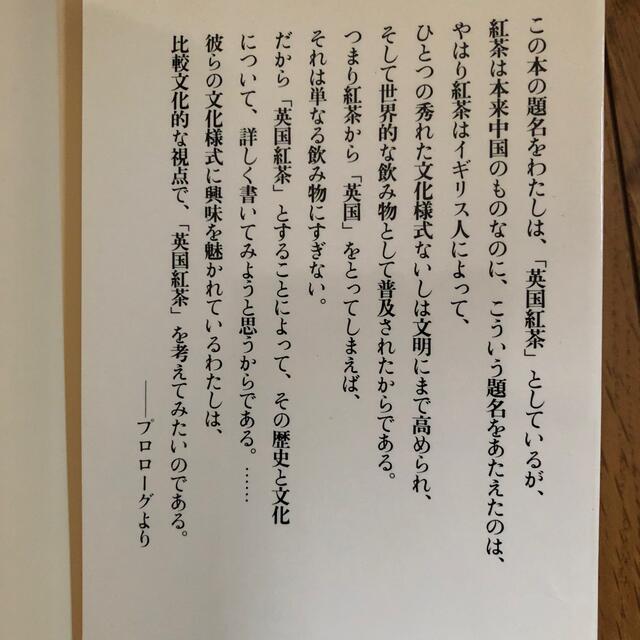 この本の題名をわたしは、「英国紅茶」としているが、
紅茶は本来中国のものなのに、こういう題名をあたえたのは、
やはり紅茶はイギリス人によって、
ひとつの秀れた文化様式ないしは文明にまで高められ、
そして世界的な飲み物として普及されたからである。
つまり紅茶から「英国」をとってしまえば、
それは単なる飲み物にすぎない。
だから「英国紅茶」とすることによって、その歴史と文化
について、詳しく書いてみようと思うからである。……
彼らの文化様式に興味を魅かれているわたしは、
比較文化的な視点で、「英国紅茶」を考えてみたいのである。
——プロローグより